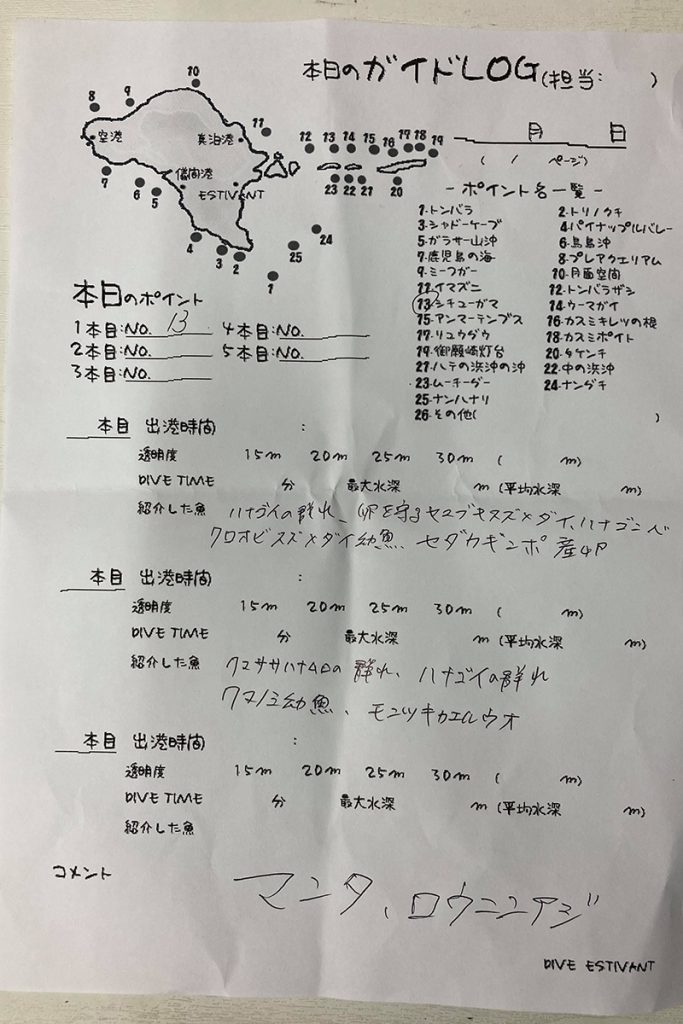 本日のガイドLOG(担当:　　)
＿＿月＿＿日
(　/　ページ)
10
8
9
空港
真泊港
11
儀間港
ESTIVANT
7
6
5
4
3
2
1
25
24
12 13 14 15 16 17 18 19
23 22 21 20
- ポイント名一覧 -
1-トンバラ　2-トリノクチ
3-シャドーケーブ　4-パイナップルバレー
5-ガラサー山沖　6-鳥島沖
7-鹿児島の海　8-プレアクエリアム
9-ミーフガー　10-月面空間
11-イマズニ　12-トンバラザシ
13-シチューガマ　14-ウーマガイ
15-アンマーテンプス　16-カスミキレツの根
17-リュウグウ　18-カスミポイント
19-御願崎灯台　20-タケンチ
21-ハテの浜沖の沖　22-中の浜沖
23-ムーチーグー　24-ナングチ
25-ナンハナリ
26-その他(　　)
本日のポイント
1本目:NO. 13　4本目:NO.
2本目:NO.　5本目:NO.
3本目:NO.
本目 出港時間　:
透明度　15m　20m　25m　30m　(　m)
DIVE TIME　分　最大水深　m (平均水深　m)
紹介した魚　ハナゴイの群れ、卵を守るセナキスズメダイ、ハナゴンベ
クロオビスズメダイ幼魚、セダカギンポ産卵
本目 出港時間　:
透明度　15m　20m　25m　30m　(　m)
DIVE TIME　分　最大水深　m (平均水深　m)
紹介した魚　クマササハナムロの群れ、ハナゴイの群れ
クマノミ幼魚、モンツキカエルウオ
本目 出港時間　:
透明度　15m　20m　25m　30m　(　m)
DIVE TIME　分　最大水深　m (平均水深　m)
紹介した魚
コメント　マンタ、ロウニンアジ
DIVE ESTIVANT